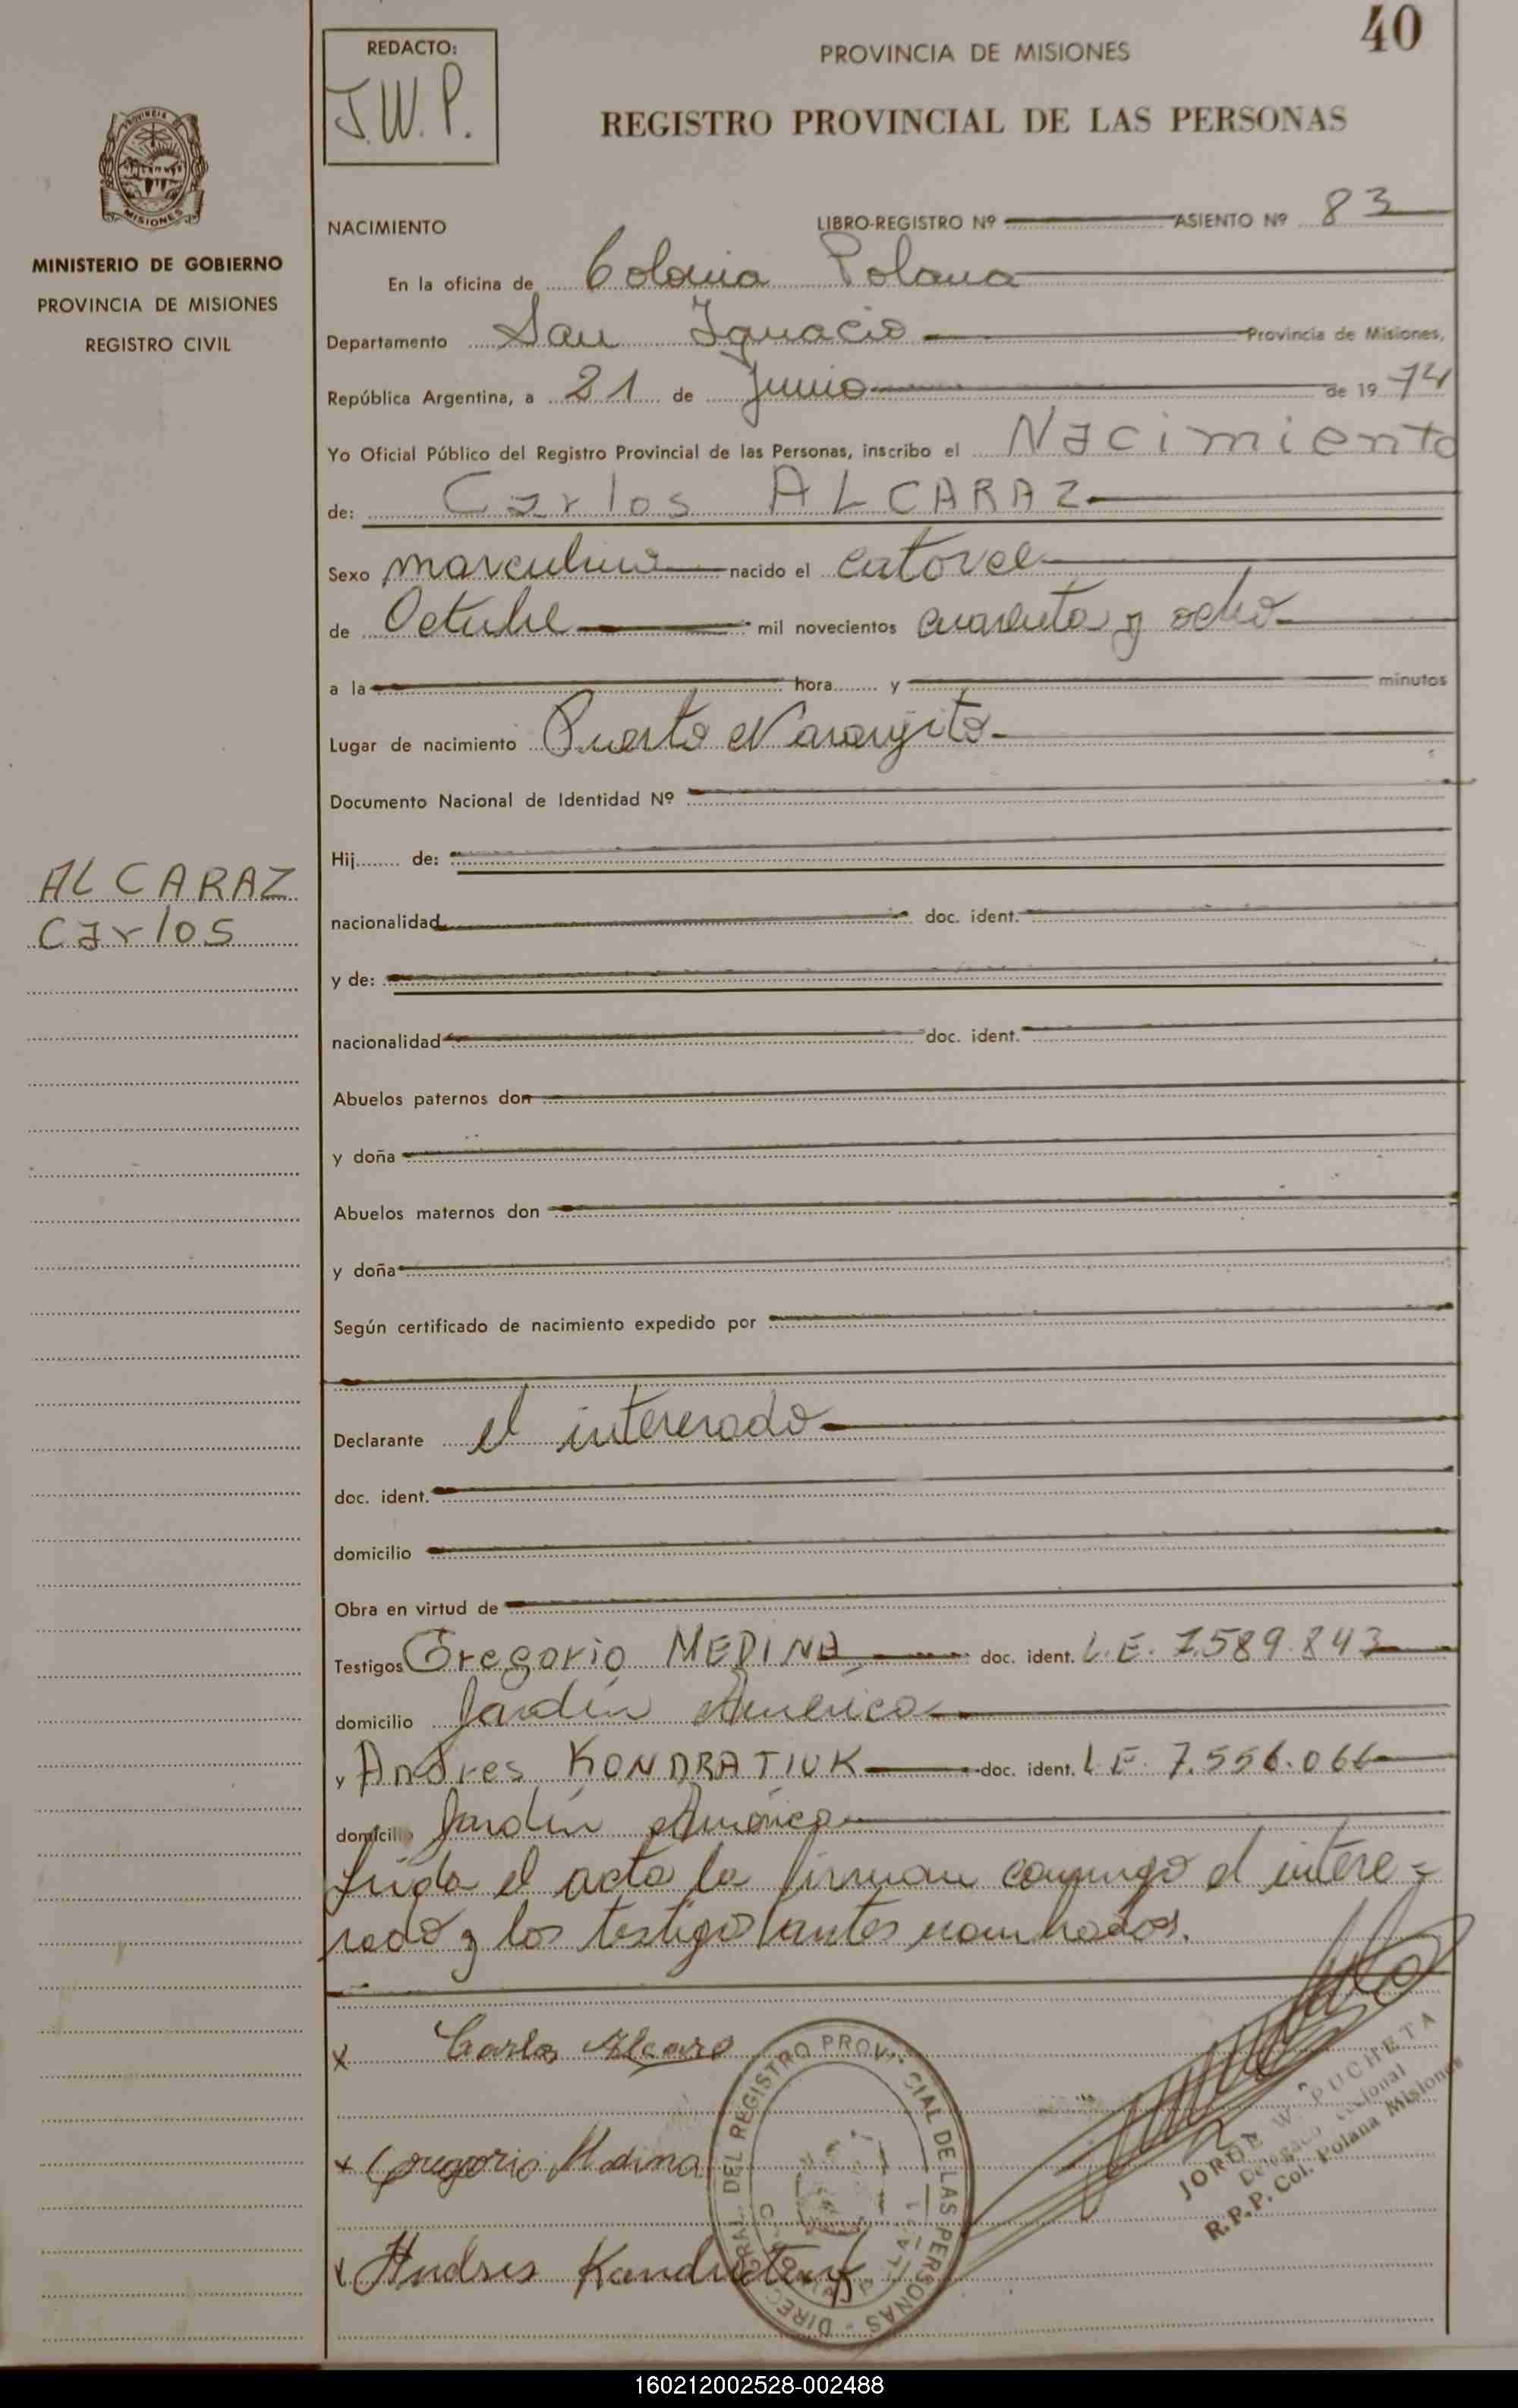 40
REDACTO:
J.W.P.
PROVINCIA DE MISIONES
REGISTRO PROVINCIAL DE LAS PERSONAS
MISIONES
MINISTERIO DE GOBIERNO
PROVINCIA DE MISIONES
REGISTRO CIVIL
ALCARAZ
Carlos
NACIMIENTO LIBRO-REGISTRO Nº ASIENTO Nº 83
En la oficina de Colonia Polana
Departamento San Ignacio Provincia de Misiones,
República Argentina, a 21 de Junio de 1974
Yo Oficial Público del Registro Provincial de las Personas, inscribo el Nacimiento
de: Carlos ALCARAZ
Sexo masculino nacido el catorce
de Octubre mil novecientos cuarenta y ocho
a la hora y minutos
Lugar de nacimiento Puerto Naranjito
Documento Nacional de Identidad Nº
Hij de:
nacionalidad doc. ident.
y de:
nacionalidad doc. ident.
Abuelos paternos don
y doña
Abuelos maternos don
y doña
Según certificado de nacimiento expedido por
Declarante el interesado
doc. ident.
domicilio
Obra en virtud de
Testigos Gregorio MEDINA doc. ident. L.E. 7.589.843
domicilio Jardín América
y Andres KONDRATIUK doc. ident. L.E. 7.556.066
domicilio Jardín América
Leída el acta la firman conmigo el intere=
sado y los testigos antes nombrados.
x Carlos Alcaro
x Gregorio Medina
x Andres
DIREC. GRAL. DEL REGISTRO PROVINCIAL DE LAS PERSONAS
JORGE W. PUCHETA
Delegado Seccional
R.P.P. Col. Polana Misiones
160212002528-002488